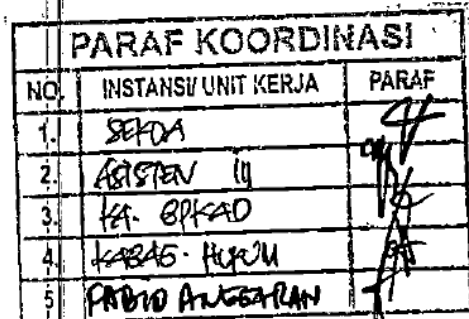 PARAF KOORDINASI
NO. INSTANSI/ UNIT KERJA PARAF
1. SEKDA
2. ASISTEN III
3. KA. BPKAD
4. KABAG. HUKUM
5 PABID ANGGARAN